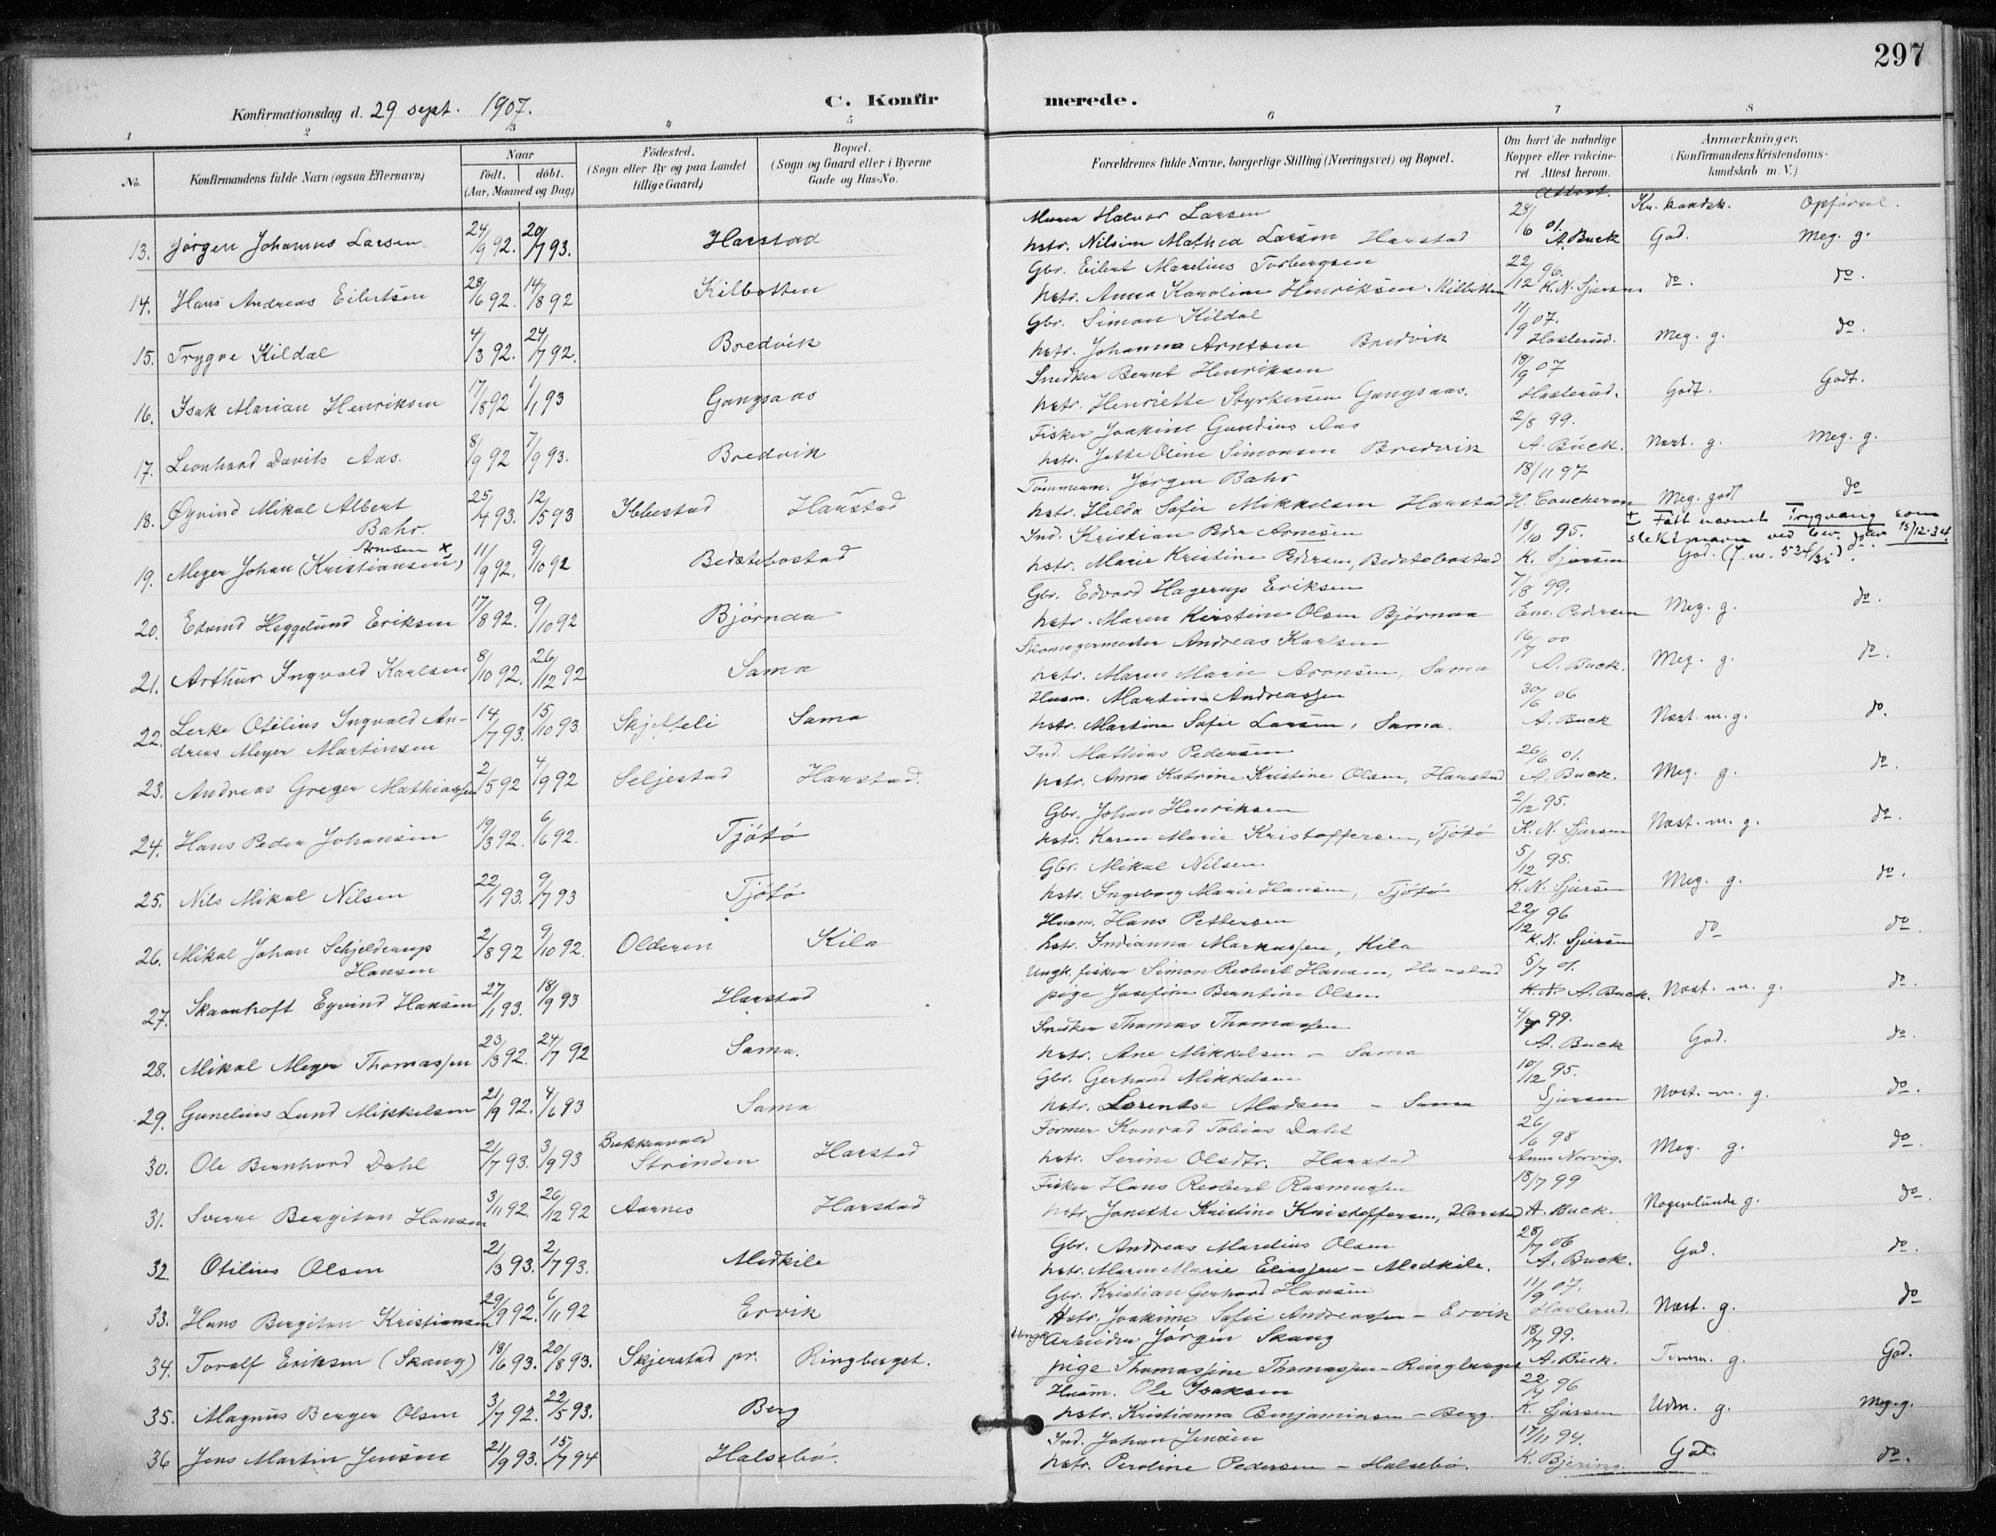 297
Konfirmationsdag d. 29 sept. 1907. C. Konfirmerede.
1 2 3 4 5 6 7 8
No. Konfirmandens fulde Navn (ogsaa Efternavn) Naar födt. döbt. (Aar, Maaned og Dag) Födested. (Sogn eller By og paa Landet tillige Gaard) Bopæl. (Sogn og Gaard eller i Byerne Gade og Hus-No. Forældrenes fulde Navne, borgerlige Stilling (Næringsvei) og Bopæl. Om havt de naturlige Kopper eller vakcineret. Attest herom. Anmærkninger, (Konfirmandens Kristendomskundskab m. V.)
Attest. Kr. kundsk. Opførsel.
Halvor Larsen 28/6 01.
13. Jørgen Johannes Larsen 24/9 92. 20/7 93. Harstad hstr. Nilsine Mathea Larsen Harstad A. Buck God. Meg. g.
Gbr. Eilert Marelius Torbergsen 22/12 96.
14. Hans Andreas Eilertsen 28/6 92. 14/8 92 Kilbotten hstr. Anna Karoline Henriksen. Kilbotten K. N. Sjursen do. do.
Gbr. Simon Kildal 11/9 07.
15. Trygve Kildal 4/3 92. 24/7 92. Bredvik hstr. Johanna Arntsen Bredvik Haslerud. Meg. g. do.
Snedker Bernt Henriksen 18/9 07
16. Isak Marian Henriksen 17/8 92 1/1 93 Gangsaas hstr. Henriette Styrkersen Gangsaas. Haslerud. Godt. Godt.
Fisker Joakim Gundius Aas 2/8 99.
17. Leonhard Davits Aas. 8/9 92 7/9 93. Bredvik hstr. Jette Oline Simonsen Bredvik A. Buck. Næst. g. Meg. g.
Tømmerm. Jørgen Bahr 18/11 97
18. Øyvind Mikal Albert Bahr. 25/4 93. 12/5 93 Ibbestad Harstad hstr. Hilda Sofie Mikkelsen Harstad Meg. godt do
Ind. Kristian Peder Arnesen 18/10 95. ± Fått navnet Trygvang som slektsnavn ved bev. 15/12-34
19. Meyer Johan (Kristiansen) Arnesen x 11/9 92. 9/10 92 Bedstebostad hstr. Marie Kristine Pedersen, Bedstebostad K. Sjursen God. do.
Gbr. Edvard Hagerup Eriksen 7/8 99.
20. Edvind Heggelund Eriksen 17/8 92. 9/10 92 Bjørnaa hstr. Maren Kirstine Olsen Bjørnaa Em. Pedersen Meg. g. do.
Skomagermester Andreas Karlsen 16/7 00
21. Arthur Ingvald Karlsen 8/10 92. 26/12 92 Sama hstr. Maren Marie Aronsen, Sama A. Buck. Meg. g. do.
Husm. Martin Andreassen 30/6 06
22. Lerke Otilius Ingvald Andreas Meyer Martinsen 14/7 93. 15/10 93 Skjefteli Sama hstr. Martine Sofie Larsen, Sama. A. Buck Næst. m. g. do.
Ind. Mathias Pedersen 26/6 01.
23. Andreas Greger Mathiassen 2/5 92 4/9 92 Seljestad Harstad. hstr. Anna Katrine Kristine Olsen, Harstad A. Buck. Meg. g. do.
Gbr. Johan Henriksen 2/12 95.
24. Hans Peder Johansen 19/3 92. 6/6 92. Tjøtø hstr. Karen Marie Kristoffersen, Tjøtø K. N. Sjursen Næst. m. g. do.
Gbr. Mikal Nilsen 5/12 95.
25. Nils Mikal Nilsen 22/1 93. 9/7 93 Tjøtø hstr. Ingeborg Marie Hansen, Tjøtø K. N. Sjursen Meg. g. do.
Husm. Hans Pettersen 22/12 96
26. Mikal Johan Schjelderup Hansen 2/8 92 9/10 92. Olderen Kila hstr. Indianna Markussen, Kila K. N. Sjursen do do.
Ungk. fisker Simon Reobert Hansen, Harstad 5/7 01.
27. Skaanhoft Eyvind Hansen 27/1 93. 18/9 93 Harstad pige Josefine Berntine Olsen K. N. A. Buck. Næst. m. g. do.
Snedker Thomas Thomassen 4/7 99.
28. Mikal Meyer Thomassen 23/3 92. 24/7 92 Sama. hstr. Ane Mikkelsen – Sama A. Buck God. do.
Gbr. Gerhard Mikkelsen 10/12 95.
29. Gunelius Lund Mikkelsen 21/9 92. 4/6 93 Sama hstr. Lorentse Madsen – Sama Sjursen Næst. m. g. do.
Former Konrad Tobias Dahl 26/6 98
30. Ole Bernhard Dahl 2/7 93. 3/9 93 Strinden Harstad hstr. Serine Olsdtr. Harstad Anna Norvig. Meg. g. do.
Fisker Hans Reobert Rasmussen 18/7 99
31. Sverre Bergitan Hansen 3/11 92. 26/12 92 Aarnes Harstad hstr. Janette Kristine Kristoffersen, Harstad A. Buck. Nogenlunde g. do.
Gbr. Andreas Marelius Olsen 28/7 06
32. Otilius Olsen 21/3 93. 2/7 93. Medkile hstr. Maren Marie Eliassen – Medkile. A. Buck. God. do.
Gbr. Kristian Gerhard Hansen 11/9 07.
33. Hans Bergitan Kristiansen 29/9 92. 6/11 92 Ervik Hstr. Joakime Sofie Andreassen – Ervik Haslerud. Næst. g. do
Ungk. Arbeider Jørgen Skang 18/7 99.
34. Toralf Eriksen (Skang) 18/6 93. 20/8 93. Skjerstad pr. Ringberget. pige Thomassine Thomassen – Ringberget A. Buck. Temm. g. God.
Husm. Ole Isaksen 22/7 96
35. Magnus Berger Olsen 3/7 92. 22/5 93. Berg hstr. Kristianna Benjaminsen – Berg. K. Sjursen Udm. g. Meg. g.
Ind. Johan Jensen 17/11 94.
36 Jens Martin Jensen 21/9 93. 15/7 94 Halsebø. hstr. Peroline Pedersen – Halsebø. K. Bjering. God. do.